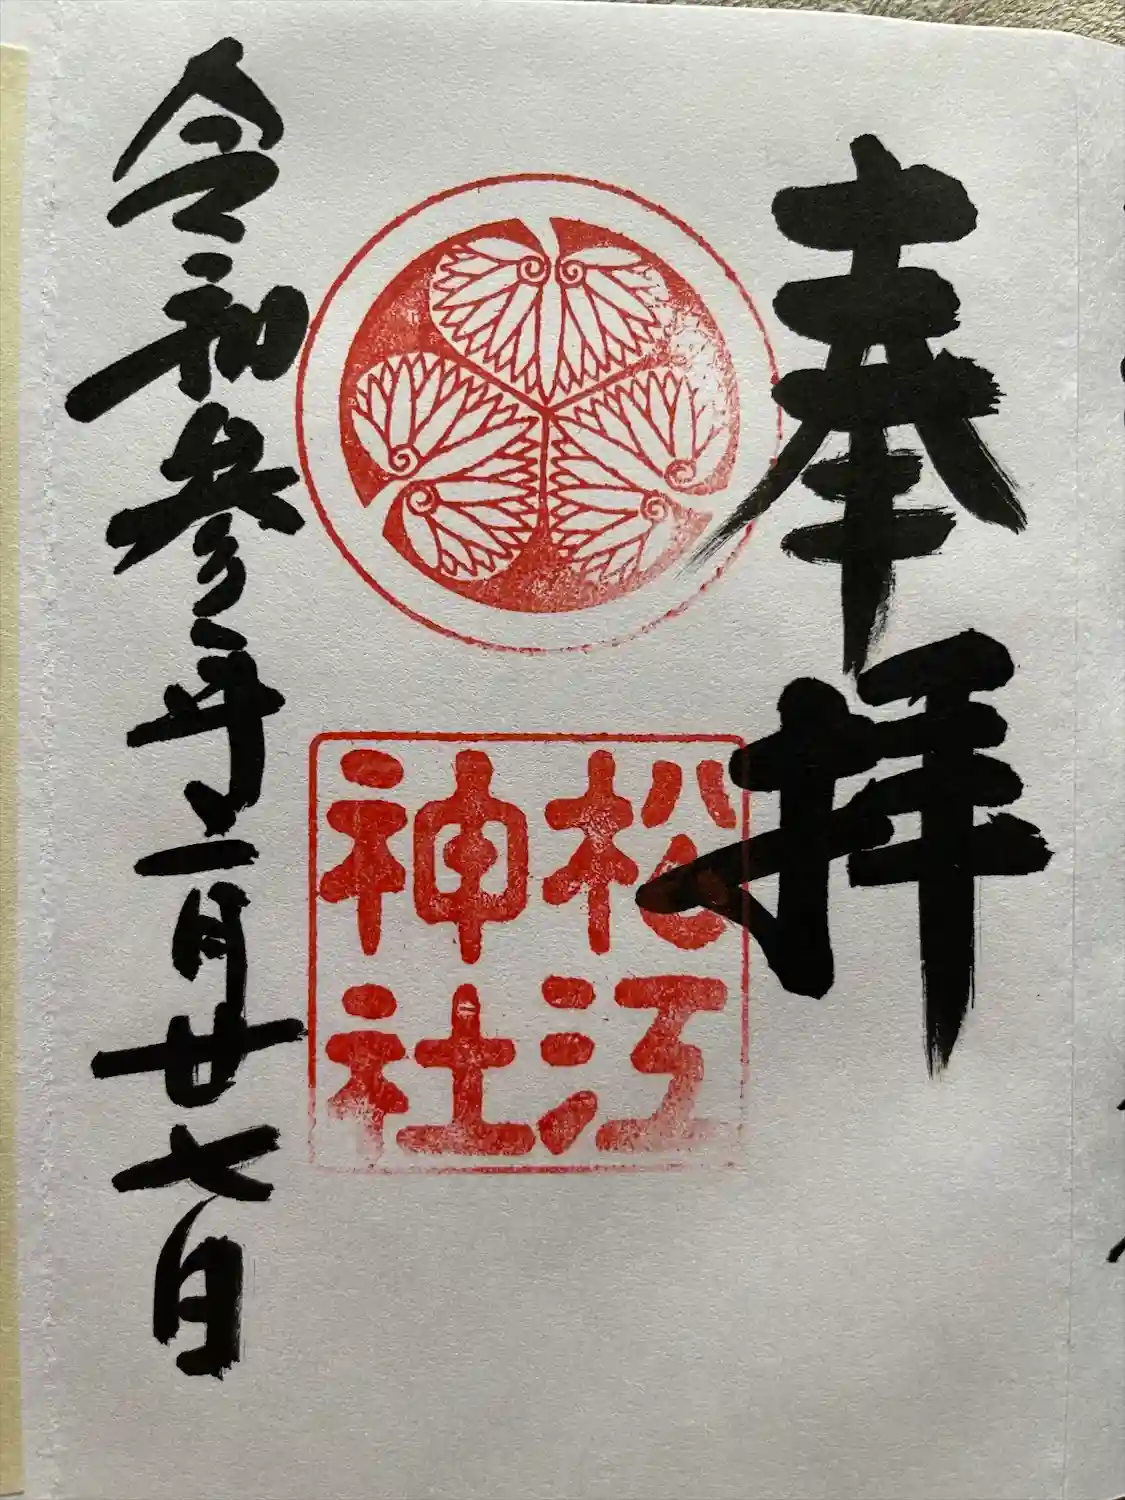 奉拝
松江
神社
令和参年二月廿七日